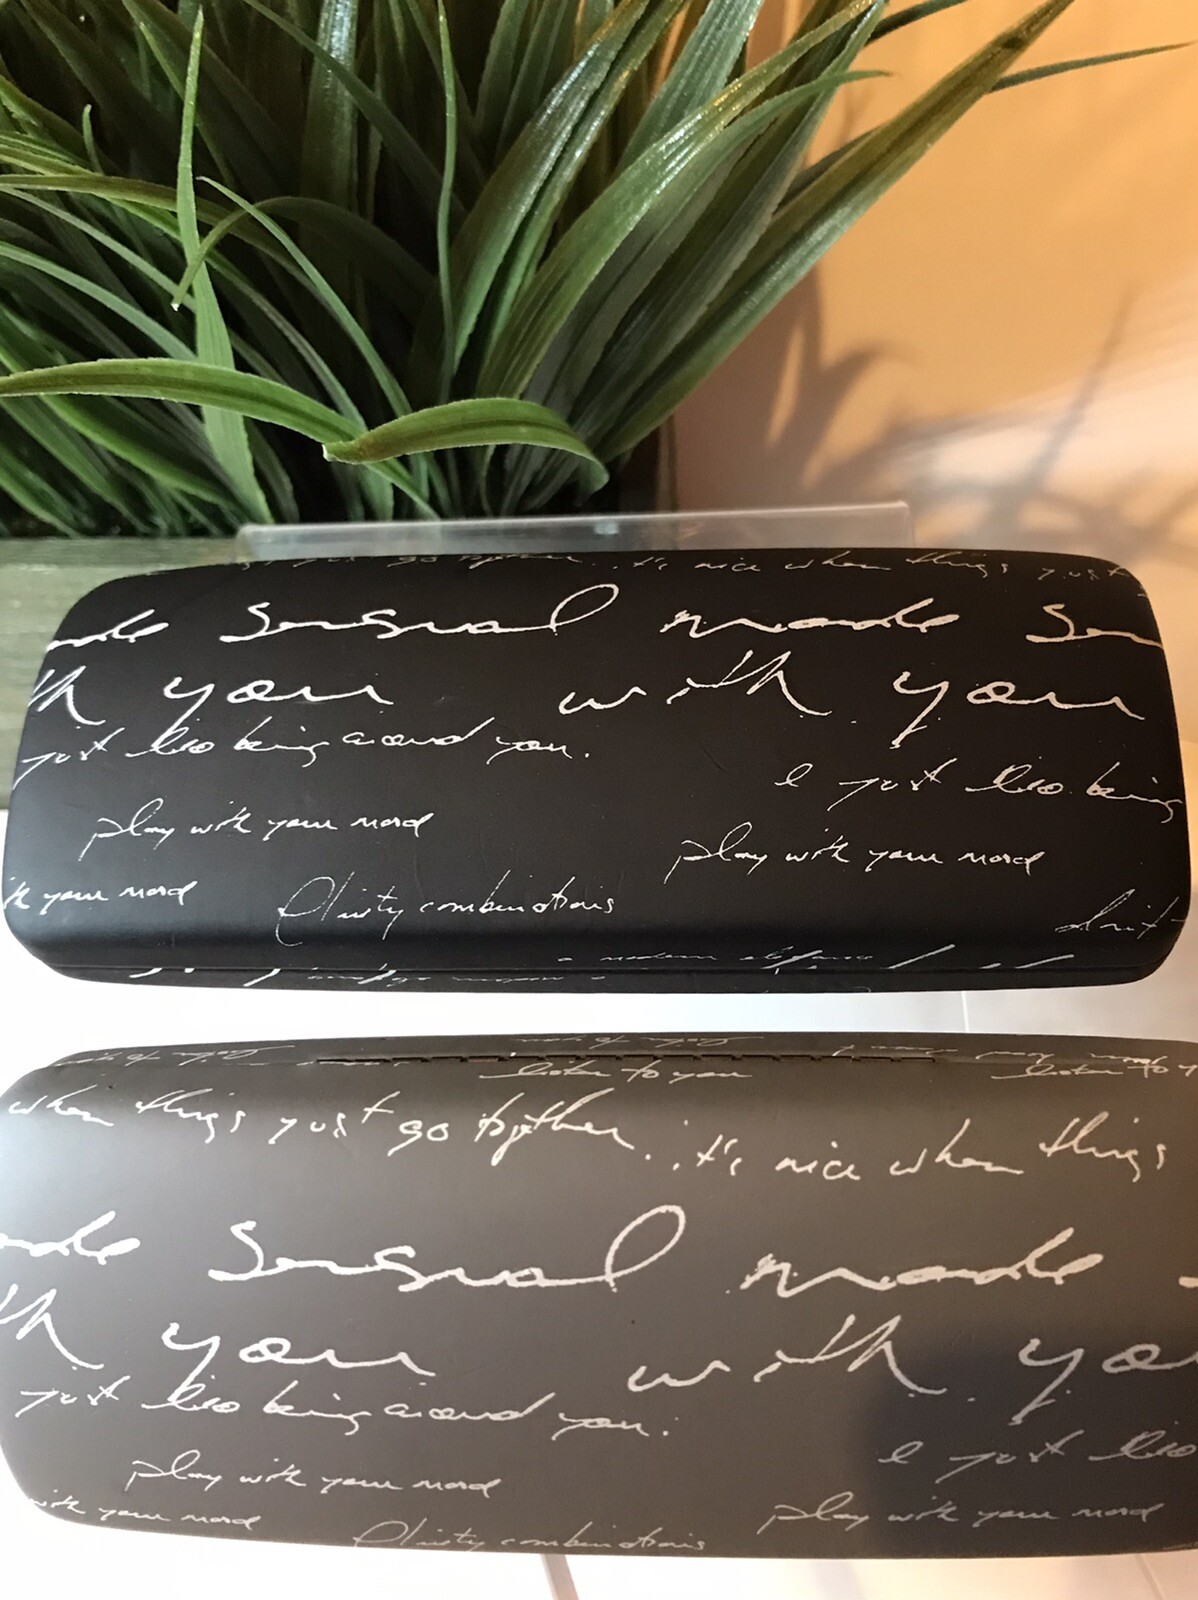 go together...it's nice when things just
sensual made
you with you
just like being around you.
I just like being
play with your mood
play with your mood
your mood flirty combinations
modern elegance
listen to you
listen to
when things just go together...it's nice when things
sensual made
you with
just like being around you.
I just like
play with your mood
with your mood play with your mood
flirty combinations